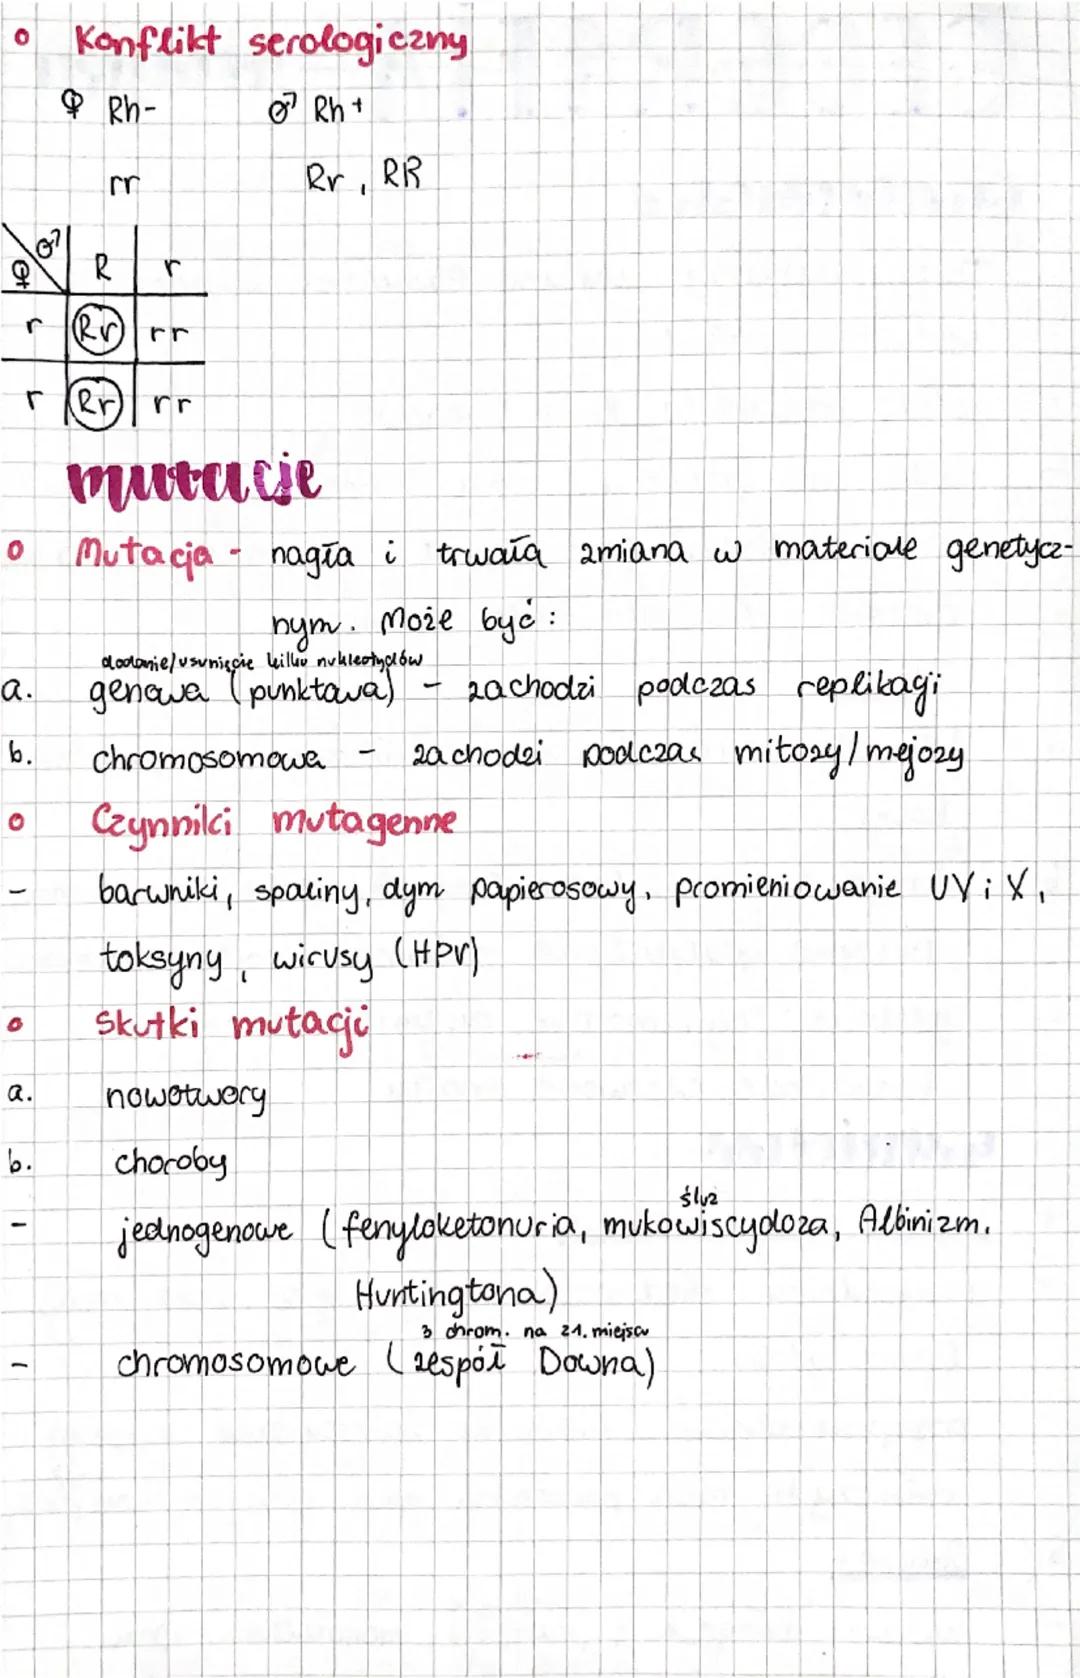 o Konflikt serologiczny
♀ Rh- ♂ Rh+
rr Rr, RR
♀ ♂ R r
r Rr rr
r Rr rr
mutacje
o Mutacja - nagła i trwałą zmiana w materiale genetycz-
nym. Może być:
dodanie/usunięcie kilku nukleotydów
a. genowa (punktowa) - zachodzi podczas replikacji
b. chromosomowa - zachodzi podczas mitozy/mejozy
o Czynniki mutagenne
- barwniki, spaliny, dym papierosowy, promieniowanie UV i X,
toksyny, wirusy (HPV)
o Skutki mutacji
a. nowotwory
b. choroby
śluz
- jednogenowe (fenyloketonuria, mukowiscydoza, Albinizm,
Huntingtona)
3 chrom. na 21. miejscu
- chromosomowe (zespół Downa)